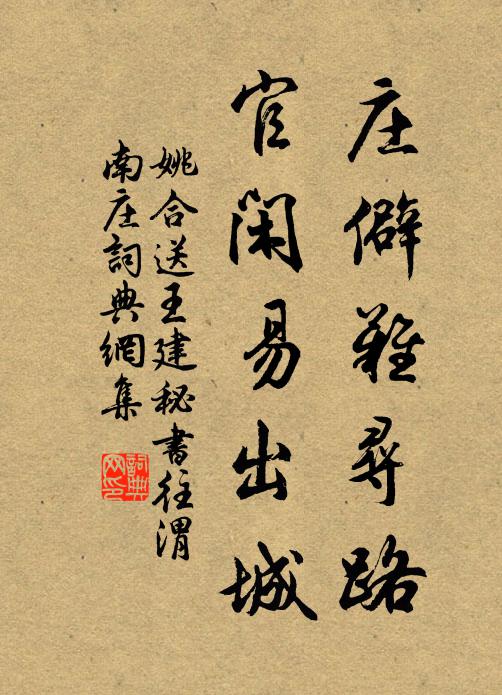 庄僻難尋路
官閑易出城
姚合送王建秘書往渭
南庄詞典網集
詞典
网印